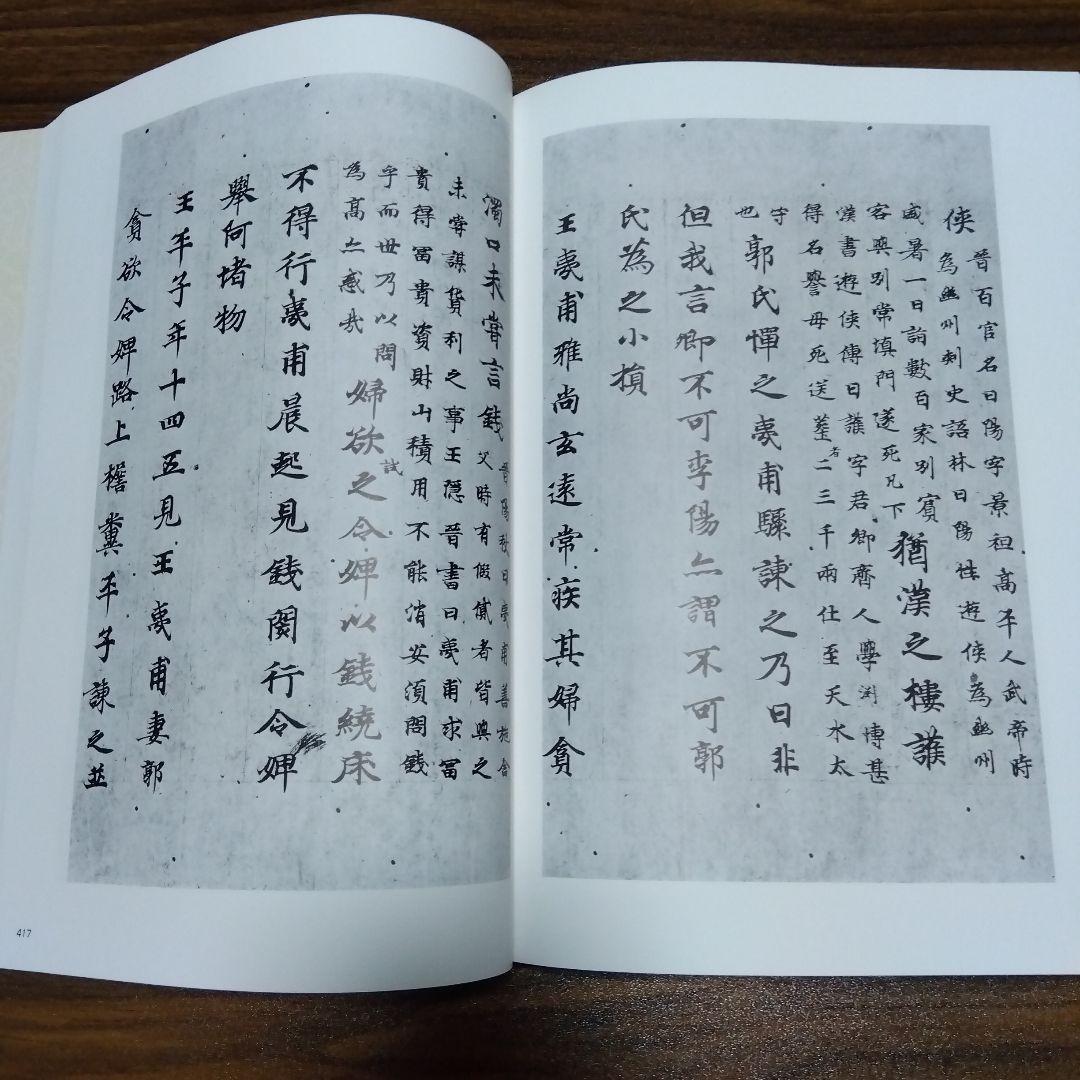 俠
晉百官名曰陽字景祖高平人武帝時
為幽州刺史語林曰陽性遊俠為幽州
盛暑一日詣數百家別賓
客與別常填門遂死凡下
猶漢之樓護
漢書遊俠傳曰護字君卿齊人學渕博甚
得名譽母死送葬者二三千兩仕至天水太
守
也
郭氏憚之夷甫驟諫之乃曰非
但我言卿不可李陽亦謂不可郭
氏為之小損
王夷甫雅尚玄遠常疾其婦貪
濁口未甞言錢
晉陽秋曰夷甫善施舍
父時有假貸者皆與之
未甞謀貨利之事王隱晉書曰夷甫求冨
貴得冨貴資財山積用不能消安湏問錢
乎而世乃以問
為髙亦惑哉
婦欲試之令婢以錢繞床
不得行夷甫晨起見錢閡行令婢
舉何堵物
王平子年十四五見王夷甫妻郭
貪欲令婢路上檐糞平子諫之並
417